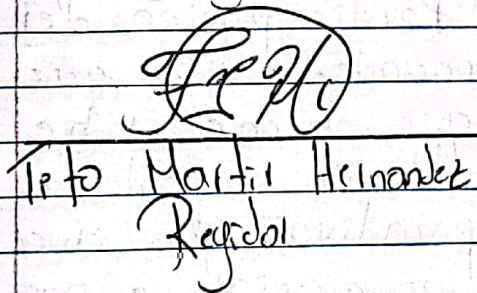 Tito Martir Hernandez
Regidor